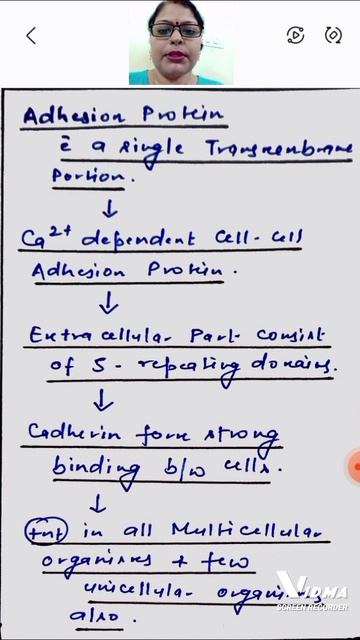 Adhesion Protein
c̄ a single Transmembrane
Portion.
↓
Ca2+ dependent Cell-Cell
Adhesion Protein.
↓
Extracellular Part consist
of 5-repeating domains.
↓
Cadherin form strong
binding b/w cells.
↓
in all Multicellular
organisms + few
unicellular organisms
also.
VIDMA
SCREEN RECORDER